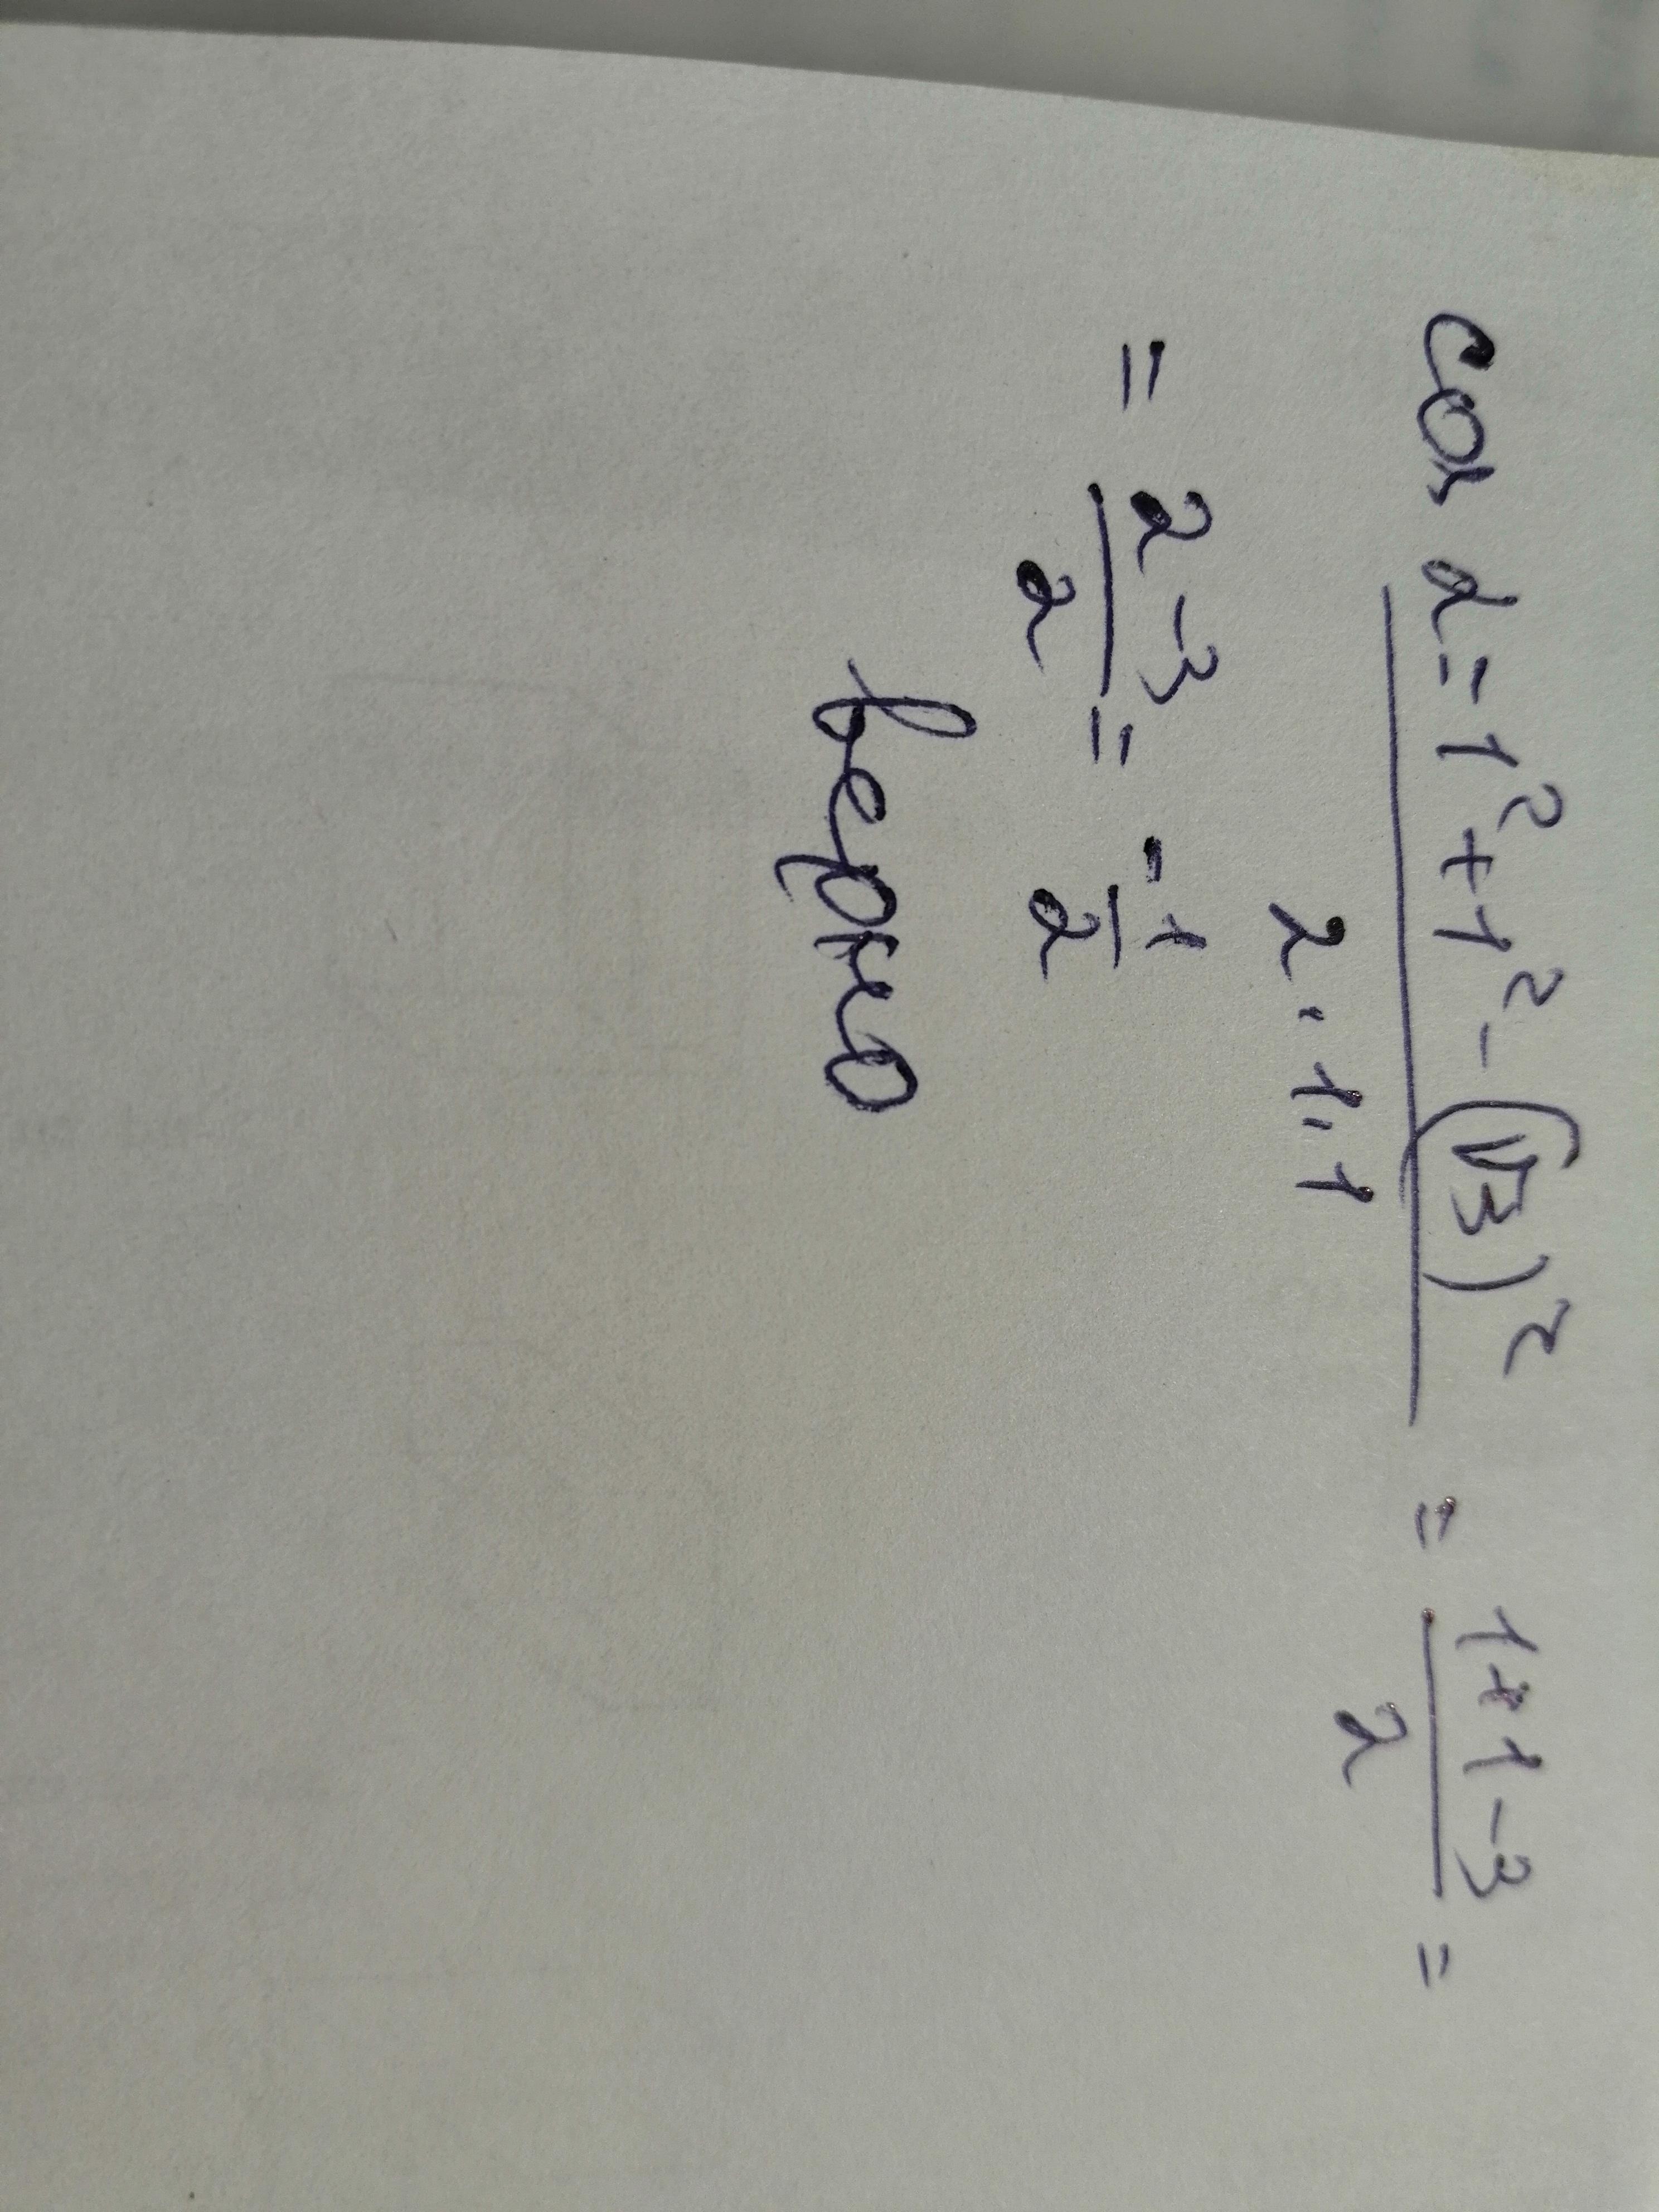 cos α = 1² + 1² - (√3)² / 2 · 1 · 1 = 1+1-3 / 2 =
= 2-3 / 2 = -1 / 2
верно